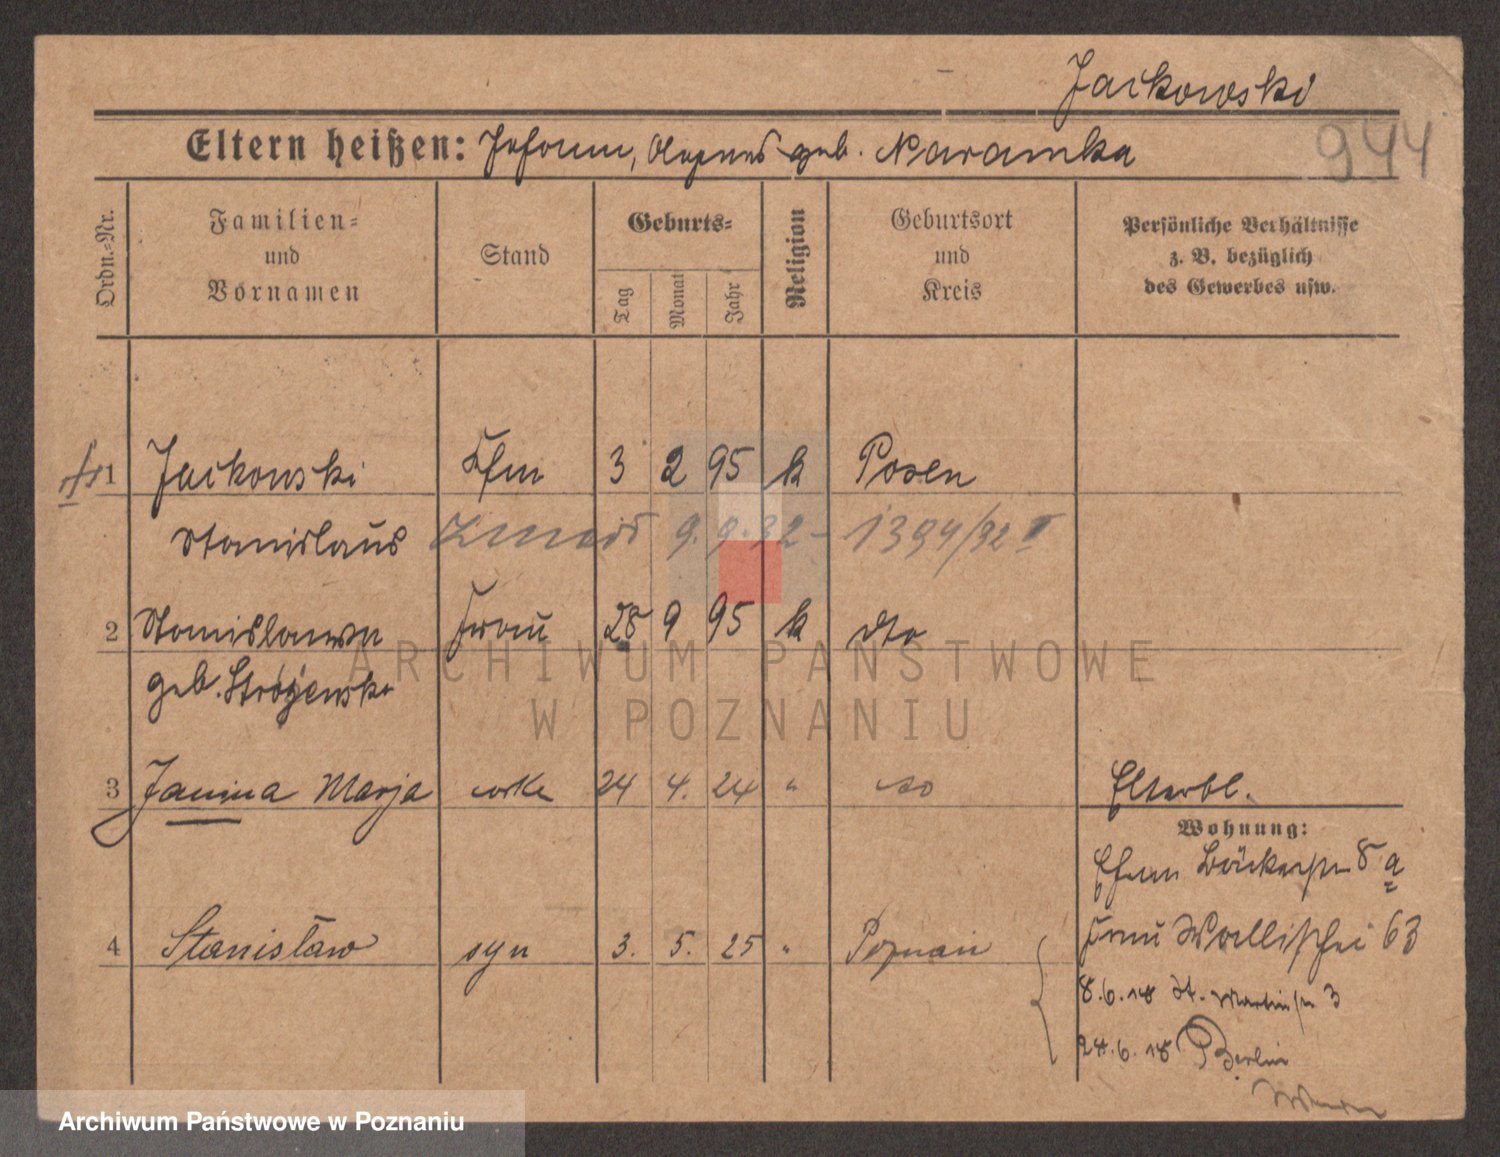 Jackowski
944
Eltern heißen: Johann, Agnes geb. Naramska
Ordn.-Nr.
Familien-
und
Vornamen
Stand
Geburts-
Tag
Monat
Jahr
Religion
Geburtsort
und
Kreis
Persönliche Verhältnisse
z. B. bezüglich
des Gewerbes usw.
1 Jackowski Kfm 3 2 95 k Posen
Stanislaus 9.9.32 - 1394/32 II
2 Stanislawa Frau 28 9 95 k dto
geb.
ARCHIWUM PAŃSTWOWE
W POZNANIU
3 Janina Marja córka 24 4. 24 " do
Elterbl.
Wohnung:
Ehem Bäckerstr 8 a
4 Stanisław syn 3. 5. 25 " Poznań
Frau Wallischei 63
8.6.18 St. Martinstr 3
24.6.18 Berlin
Archiwum Państwowe w Poznaniu